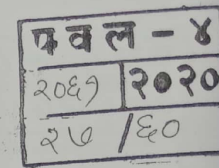 पवल - ४
२०६१ २०२०
२७ / ६०